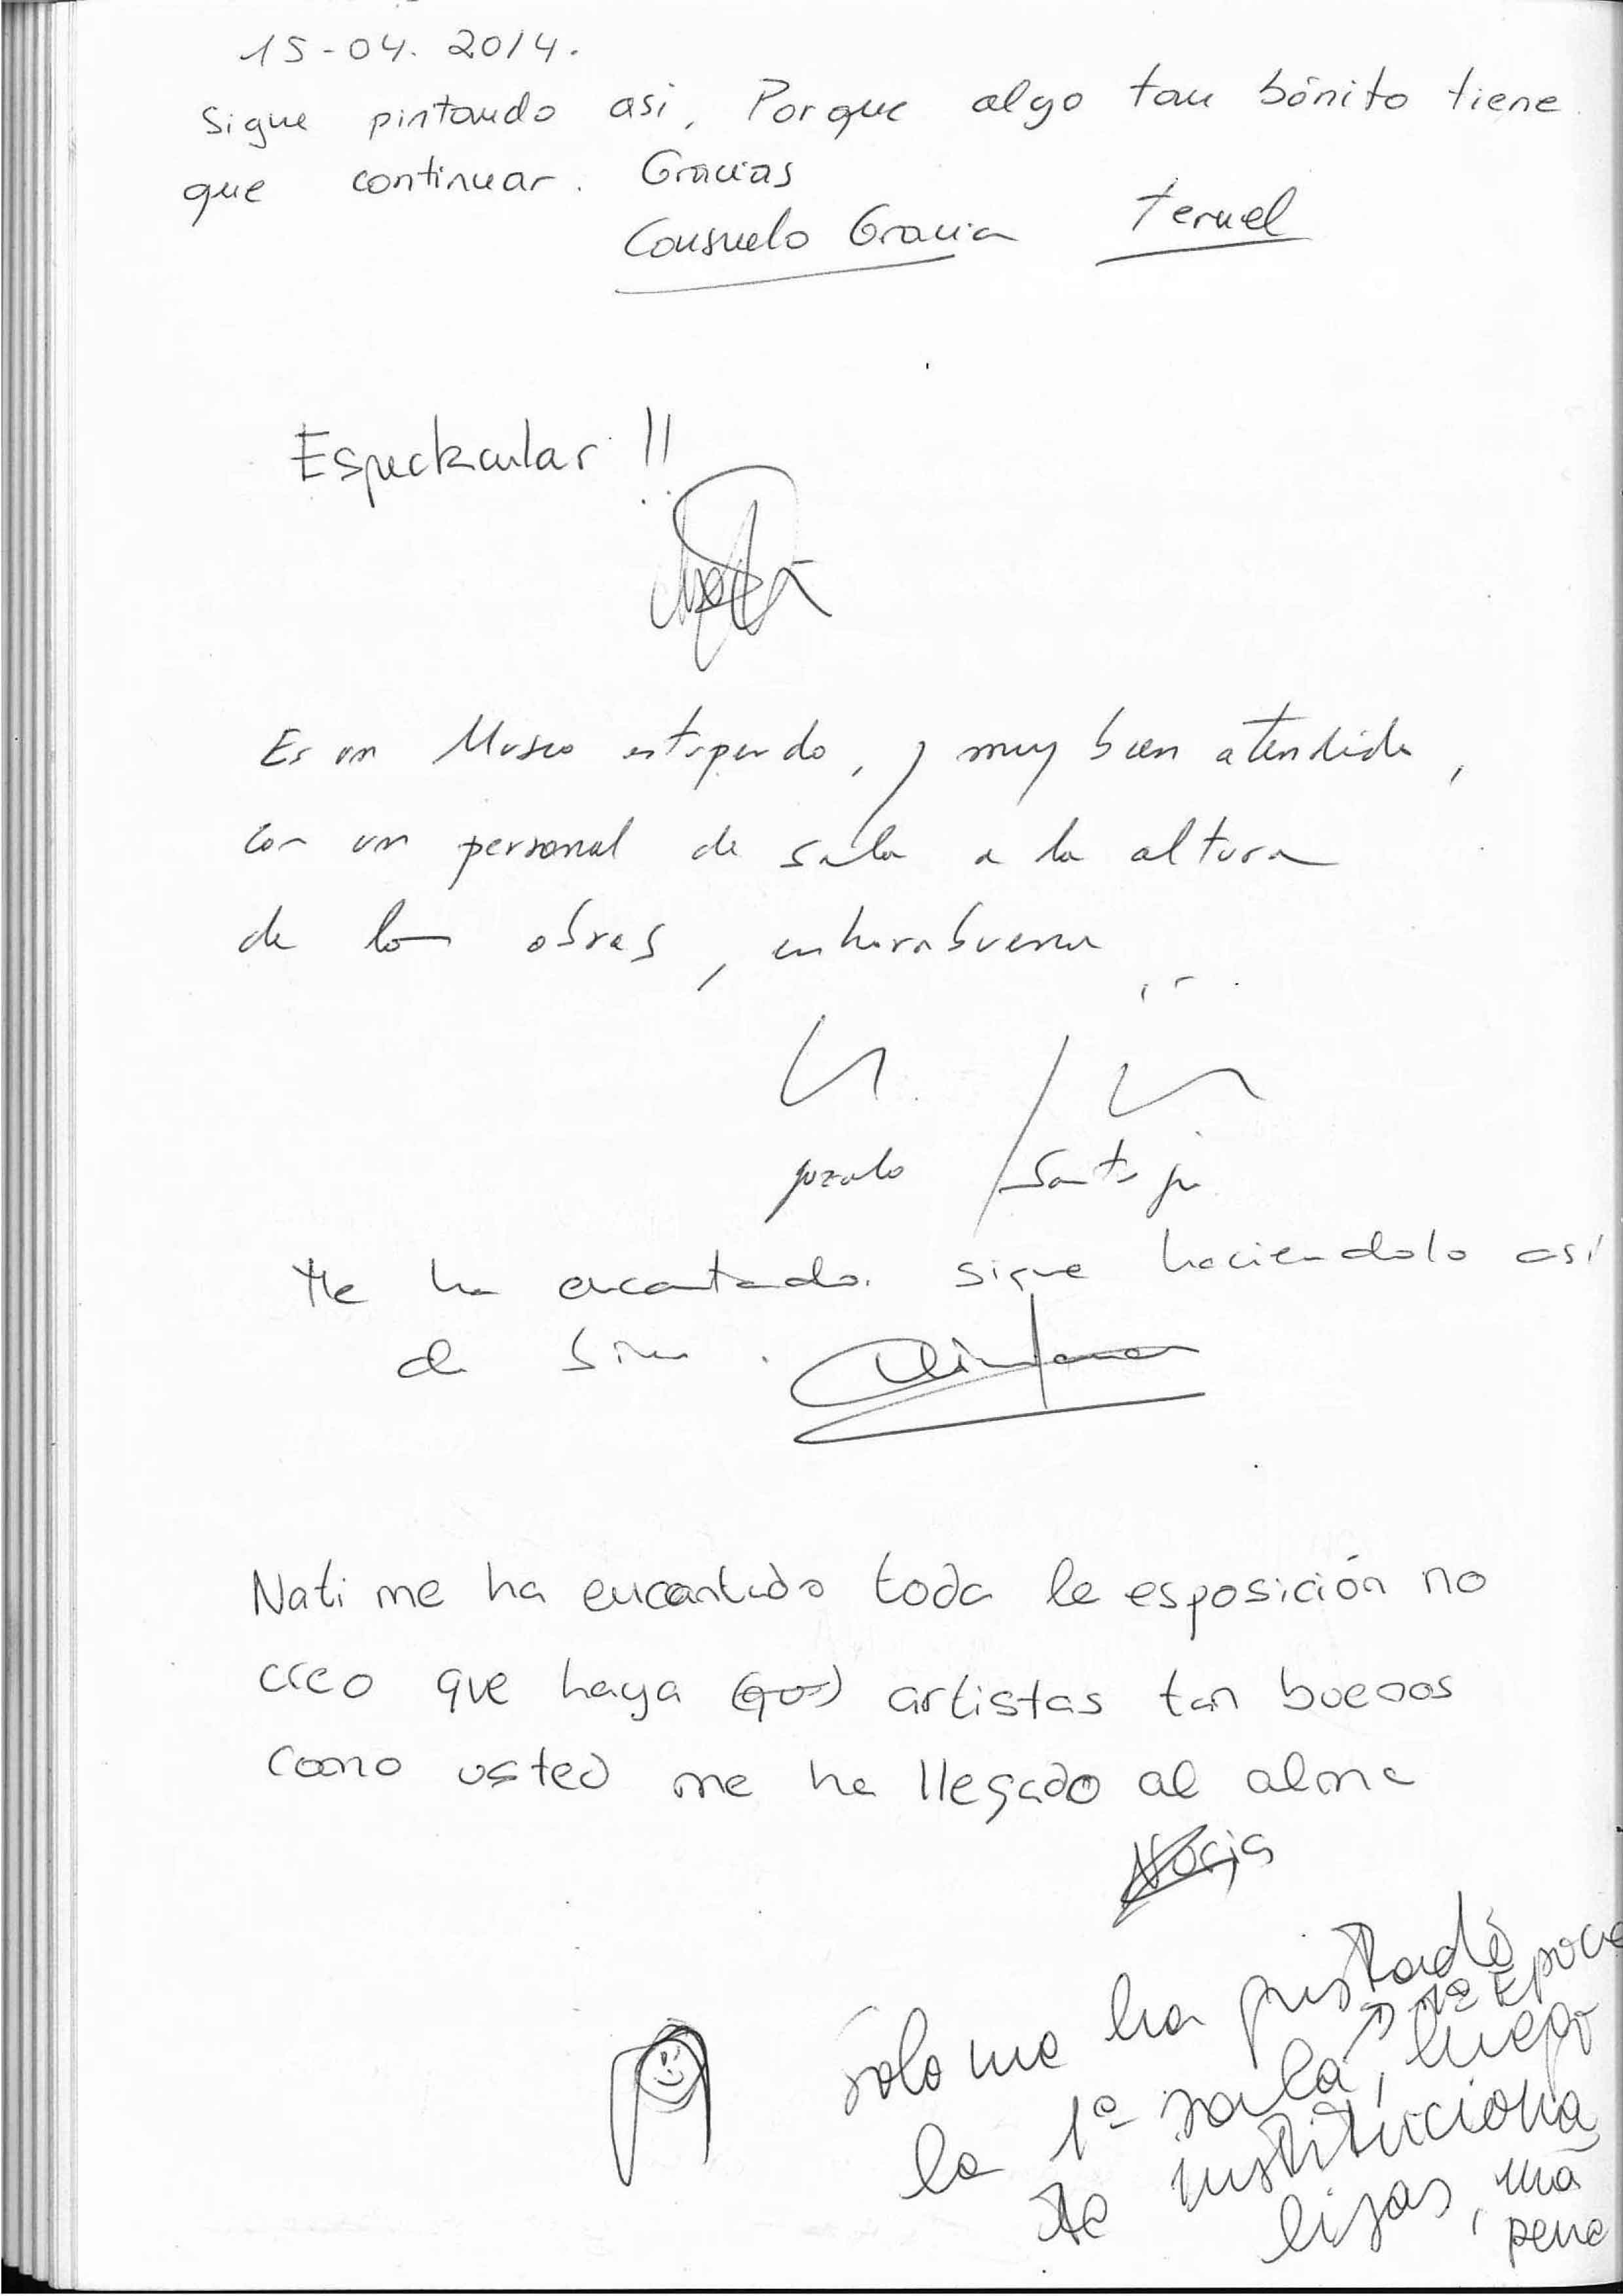 15-04. 2014.
Sigue pintando asi, Porque algo tan bónito tiene
que continuar. Gracias
Consuelo Gracia Teruel
Espectacular !!
Es un Museo estupendo, y muy bien atendido,
con un personal de sala a la altura
de las obras, enhorabuena
gozalo / Santiago
Me ha encantado. sigue haciendolo así
de
Nati me ha encantado toda la esposición no
creo que haya artistas tan buenos
como usted me ha llegado al alma
Sólo me ha gustado
la 1ª sala, → 1ª Epoca
luego
te instituciona
lizas, una
pena